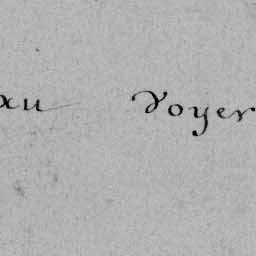 xu Voyer